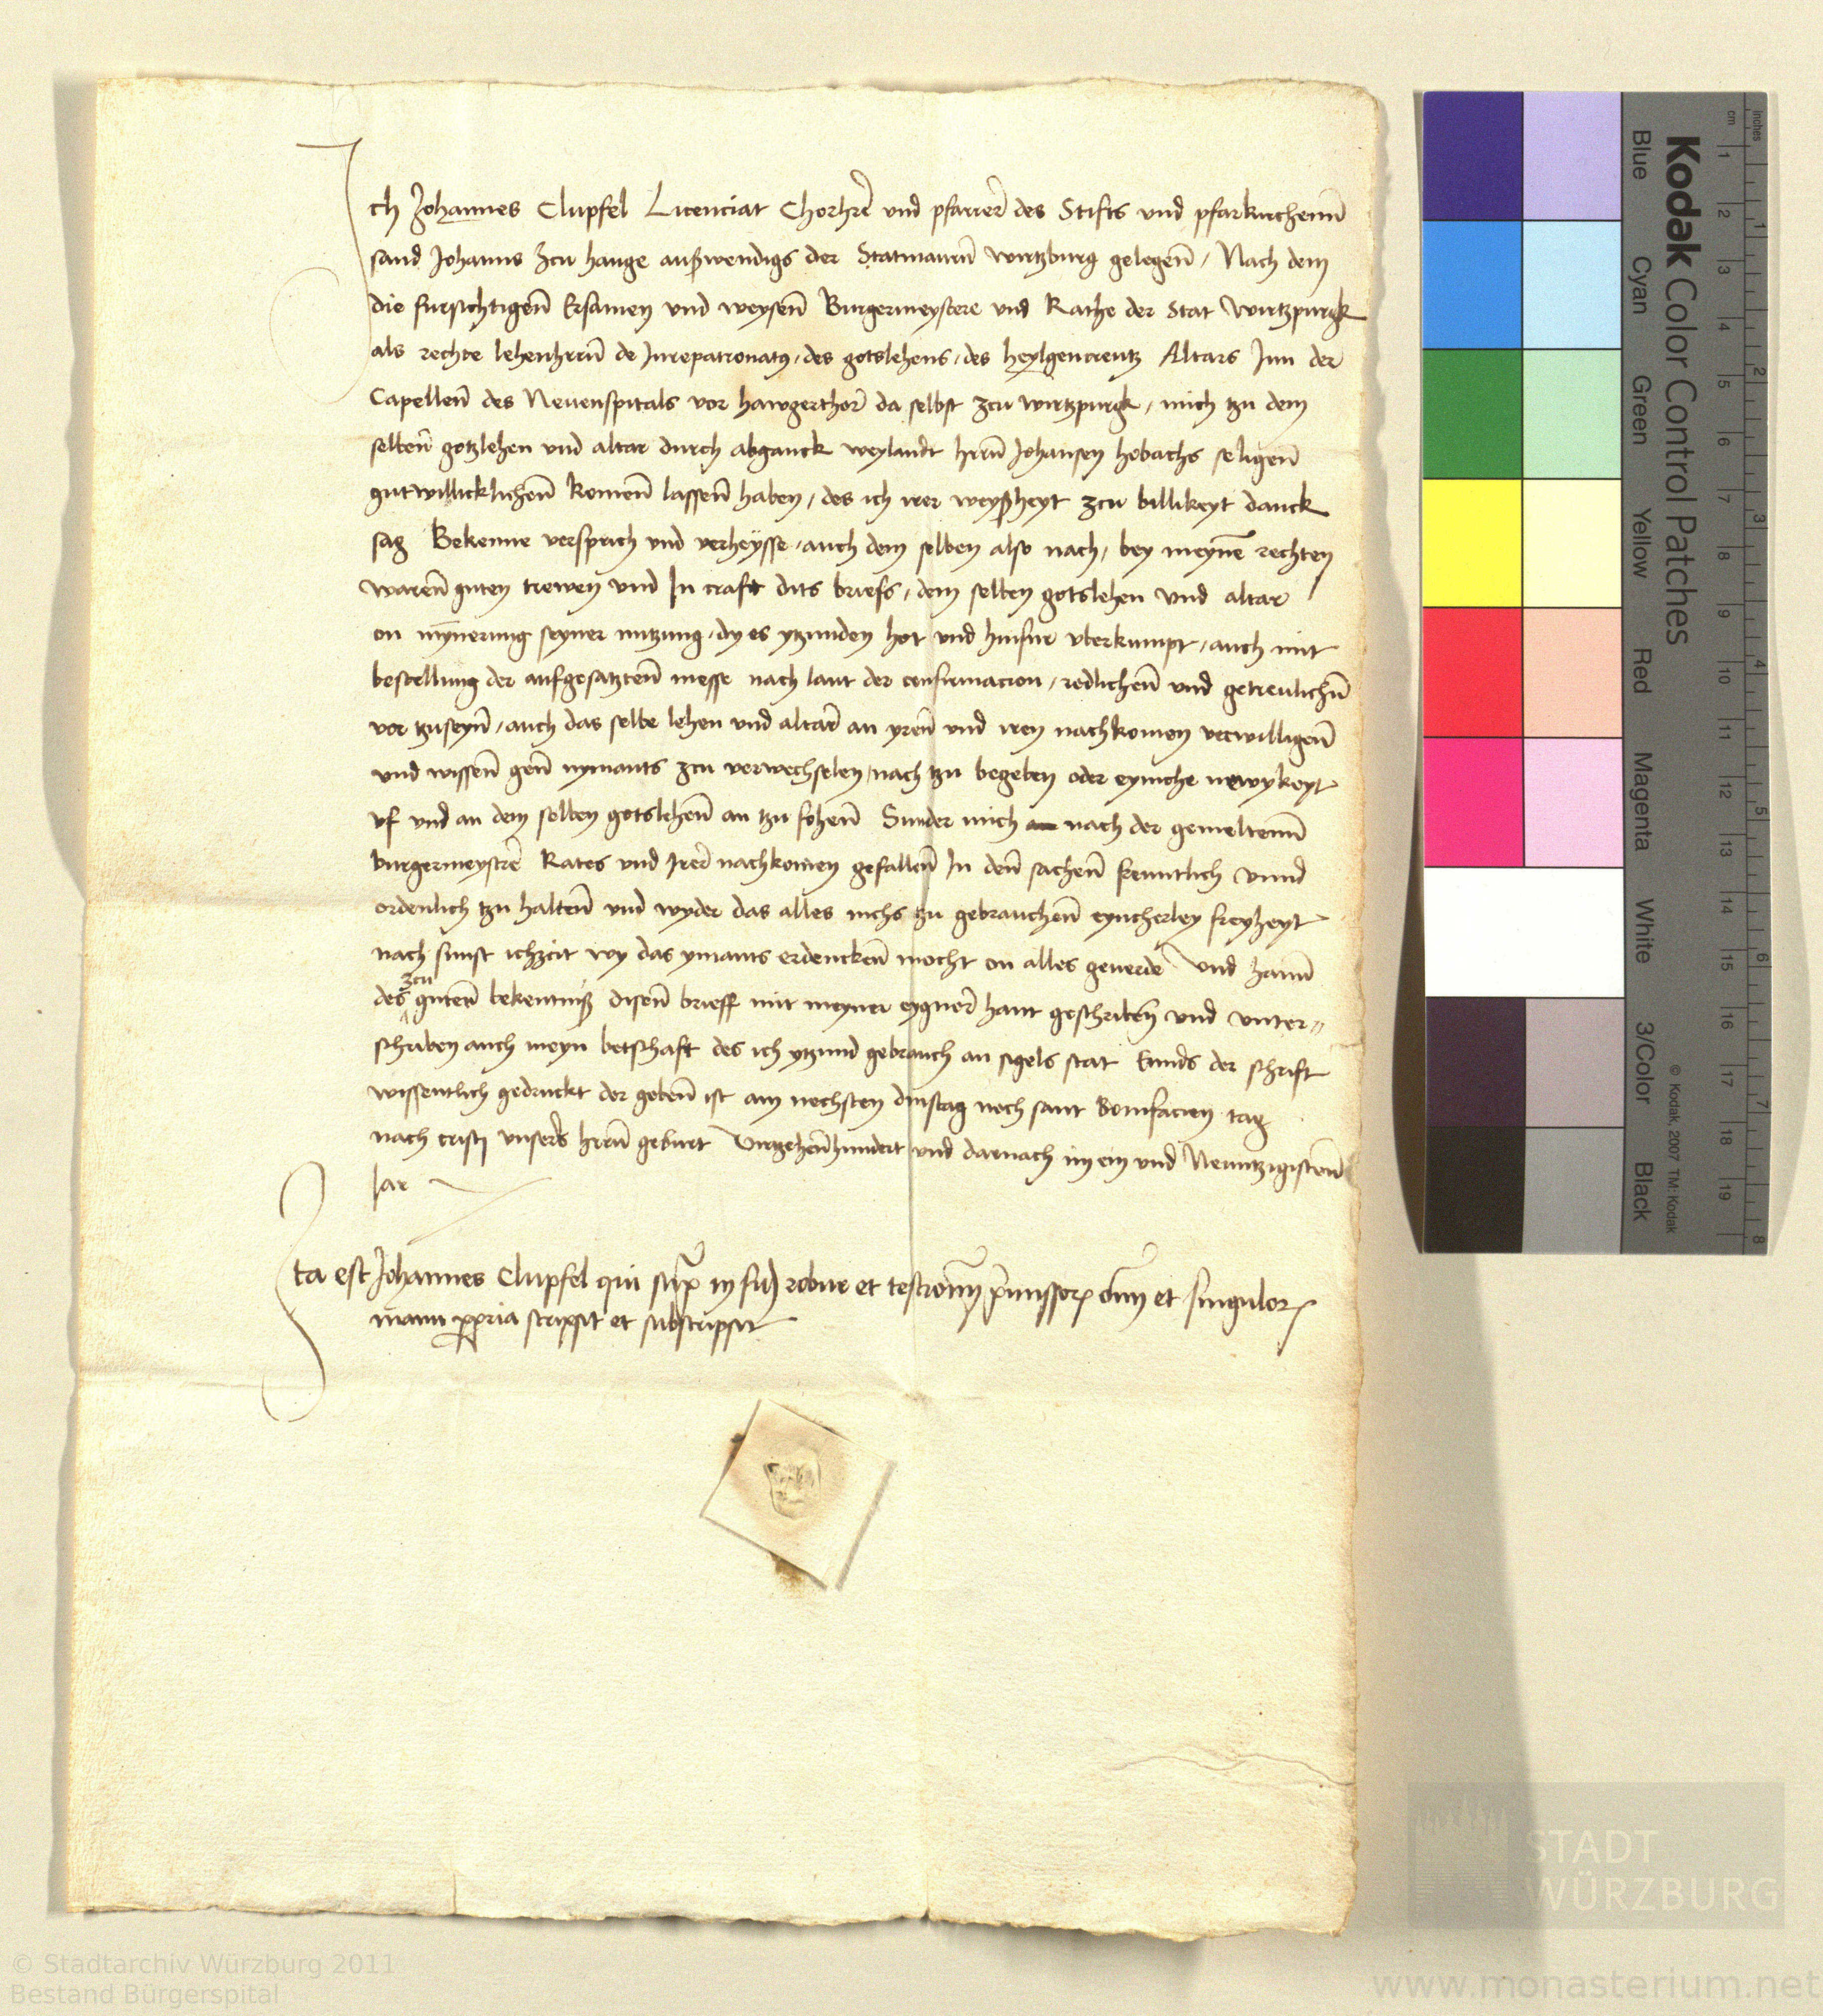 Ich Johannes Clupfel Licenciat Chorhrē und pfarrer̄ des Stifts und pfarkirchenn̄
sand Johanns zcu hauge außwendigs der Statmaurn̄ wirtzburg gelegen̄ / Nach dem
die fursichtigen̄ Ersamen und weysen̄ Burgermeystere und Rathe der Stat Wirtzpurgk
als rechte lehenhrrn̄ de Jurepatronatus / des gotslehens / des heylgencreutz Altars Jnn der
Capellen̄ des Neuenspitals vor hawgerthor̄ da selbst zcu wirtzpurgk / mich tzu dem
selben̄ gotzlehen und altar durch abganck weylandt hrrn̄ Johansen hobachs seligen̄
gutwillicklichen̄ komen̄ lassen̄ haben / des ich irer weyßheyt zcu billikeyt danck
sag Bekenne versprich und verheysse / auch dem selben also nach / bey meynē rechten
waren̄ guten trewen und In craft dits briefs / dem selben gotslehen und altar
on mynerung seyner nutzung / dy es ytzunden hot und hinfur uberkumpt / auch mit
bestellung der aufgesatzten̄ messe nach laut der confirmacion / redlichen̄ und getreulichn̄
vor tzuseyn̄ / auch das selbe lehen und altar̄ an yren̄ und iren nachkomen verwilligen̄
und wissen̄ gen̄ nymants zcu verwechselen / nach tzu begeben oder eyniche newykeyt
uf und an dem selben gotslehen̄ an tzu fohen̄ Sunder mich nach der gemeltenn̄
burgermeystrē Rates und Irer̄ nachkomen gefallen̄ In den̄ sachen̄ kenntlich unnd
ordenlich tzu halten̄ und wyder das alles nichs tzu gebrauchen̄ eyncherley freyheyt
nach sunst ichzcit wy das ymants erdencken̄ mocht on alles geuerde Und hann̄
des zcu guten̄ bekentniß disen̄ brieff mit meyner eygner̄ hant geschriben̄ und unter=
schriben auch meyn betschaft des ich ytzund gebrauch an sigels stat Ennds der schrift
wissentlich gedruckt der geben̄ ist am nechsten dinstag noch sant Bonifacien tag
nach cristi unsers hrrn̄ geburt Virtzehen̄hundert und darnach im ein und Neuntzigisten̄
Jar
Ita est Johannes Clupfel qui supra in fidem robur et testimonium premissorum omnium et singulorum
manu propria scripsit et subscripsit
Kodak Color Control Patches
Blue Cyan Green Yellow Red Magenta White 3/Color Black
© Kodak, 2007 TM: Kodak
cm 1 2 3 4 5 6 7 8 9 10 11 12 13 14 15 16 17 18 19
Inches 1 2 3 4 5 6 7 8
STADT
WÜRZBURG
© Stadtarchiv Würzburg 2011
Bestand Bürgerspital
www.monasterium.net